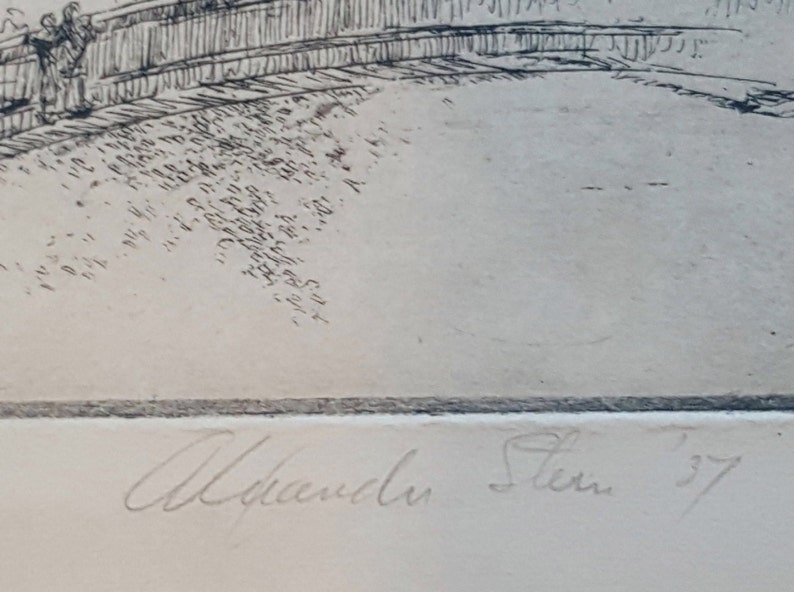 Alexander Stern '37